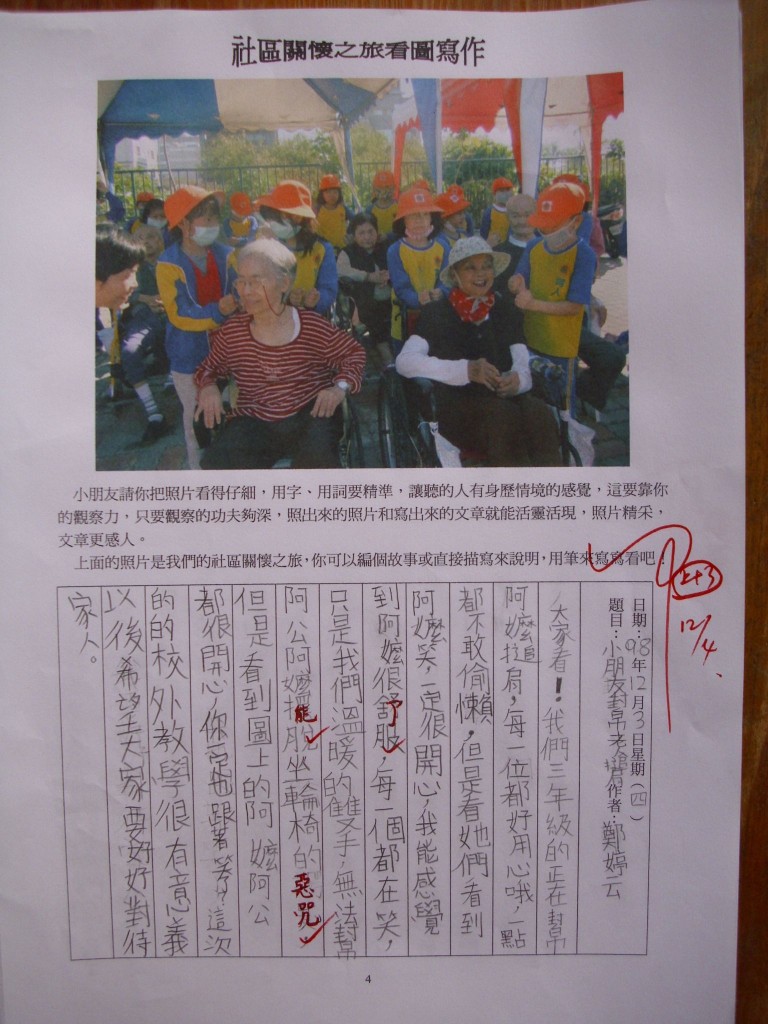 社區關懷之旅看圖寫作
小朋友請你把照片看得仔細，用字、用詞要精準，讓聽的人有身歷情境的感覺，這要靠你
的觀察力，只要觀察的功夫夠深，照出來的照片和寫出來的文章就能活靈活現，照片精采，
文章更感人。
上面的照片是我們的社區關懷之旅，你可以編個故事或直接描寫來說明，用筆來寫寫看吧！
日期：98年12月3日星期（四）
題目：小朋友幫老人搥肩 作者：鄭婷云
12/4
大家看！我們三年級的正在幫
阿嬤搥肩，每一位都好用心哦，一點
都不敢偷懶，但是看她們看到
阿嬤笑，一定很開心，我能感覺
到阿嬤很舒服，每一個都在笑，
只是我們溫暖的雙手，無法幫
阿公阿嬤擺脫坐輪椅的惡咒
能
予
但是看到圖上的阿嬤阿公
都很開心，你一定也跟著笑？這次
的的校外教學很有意義
以後希望大家要好好對待
家人。
4